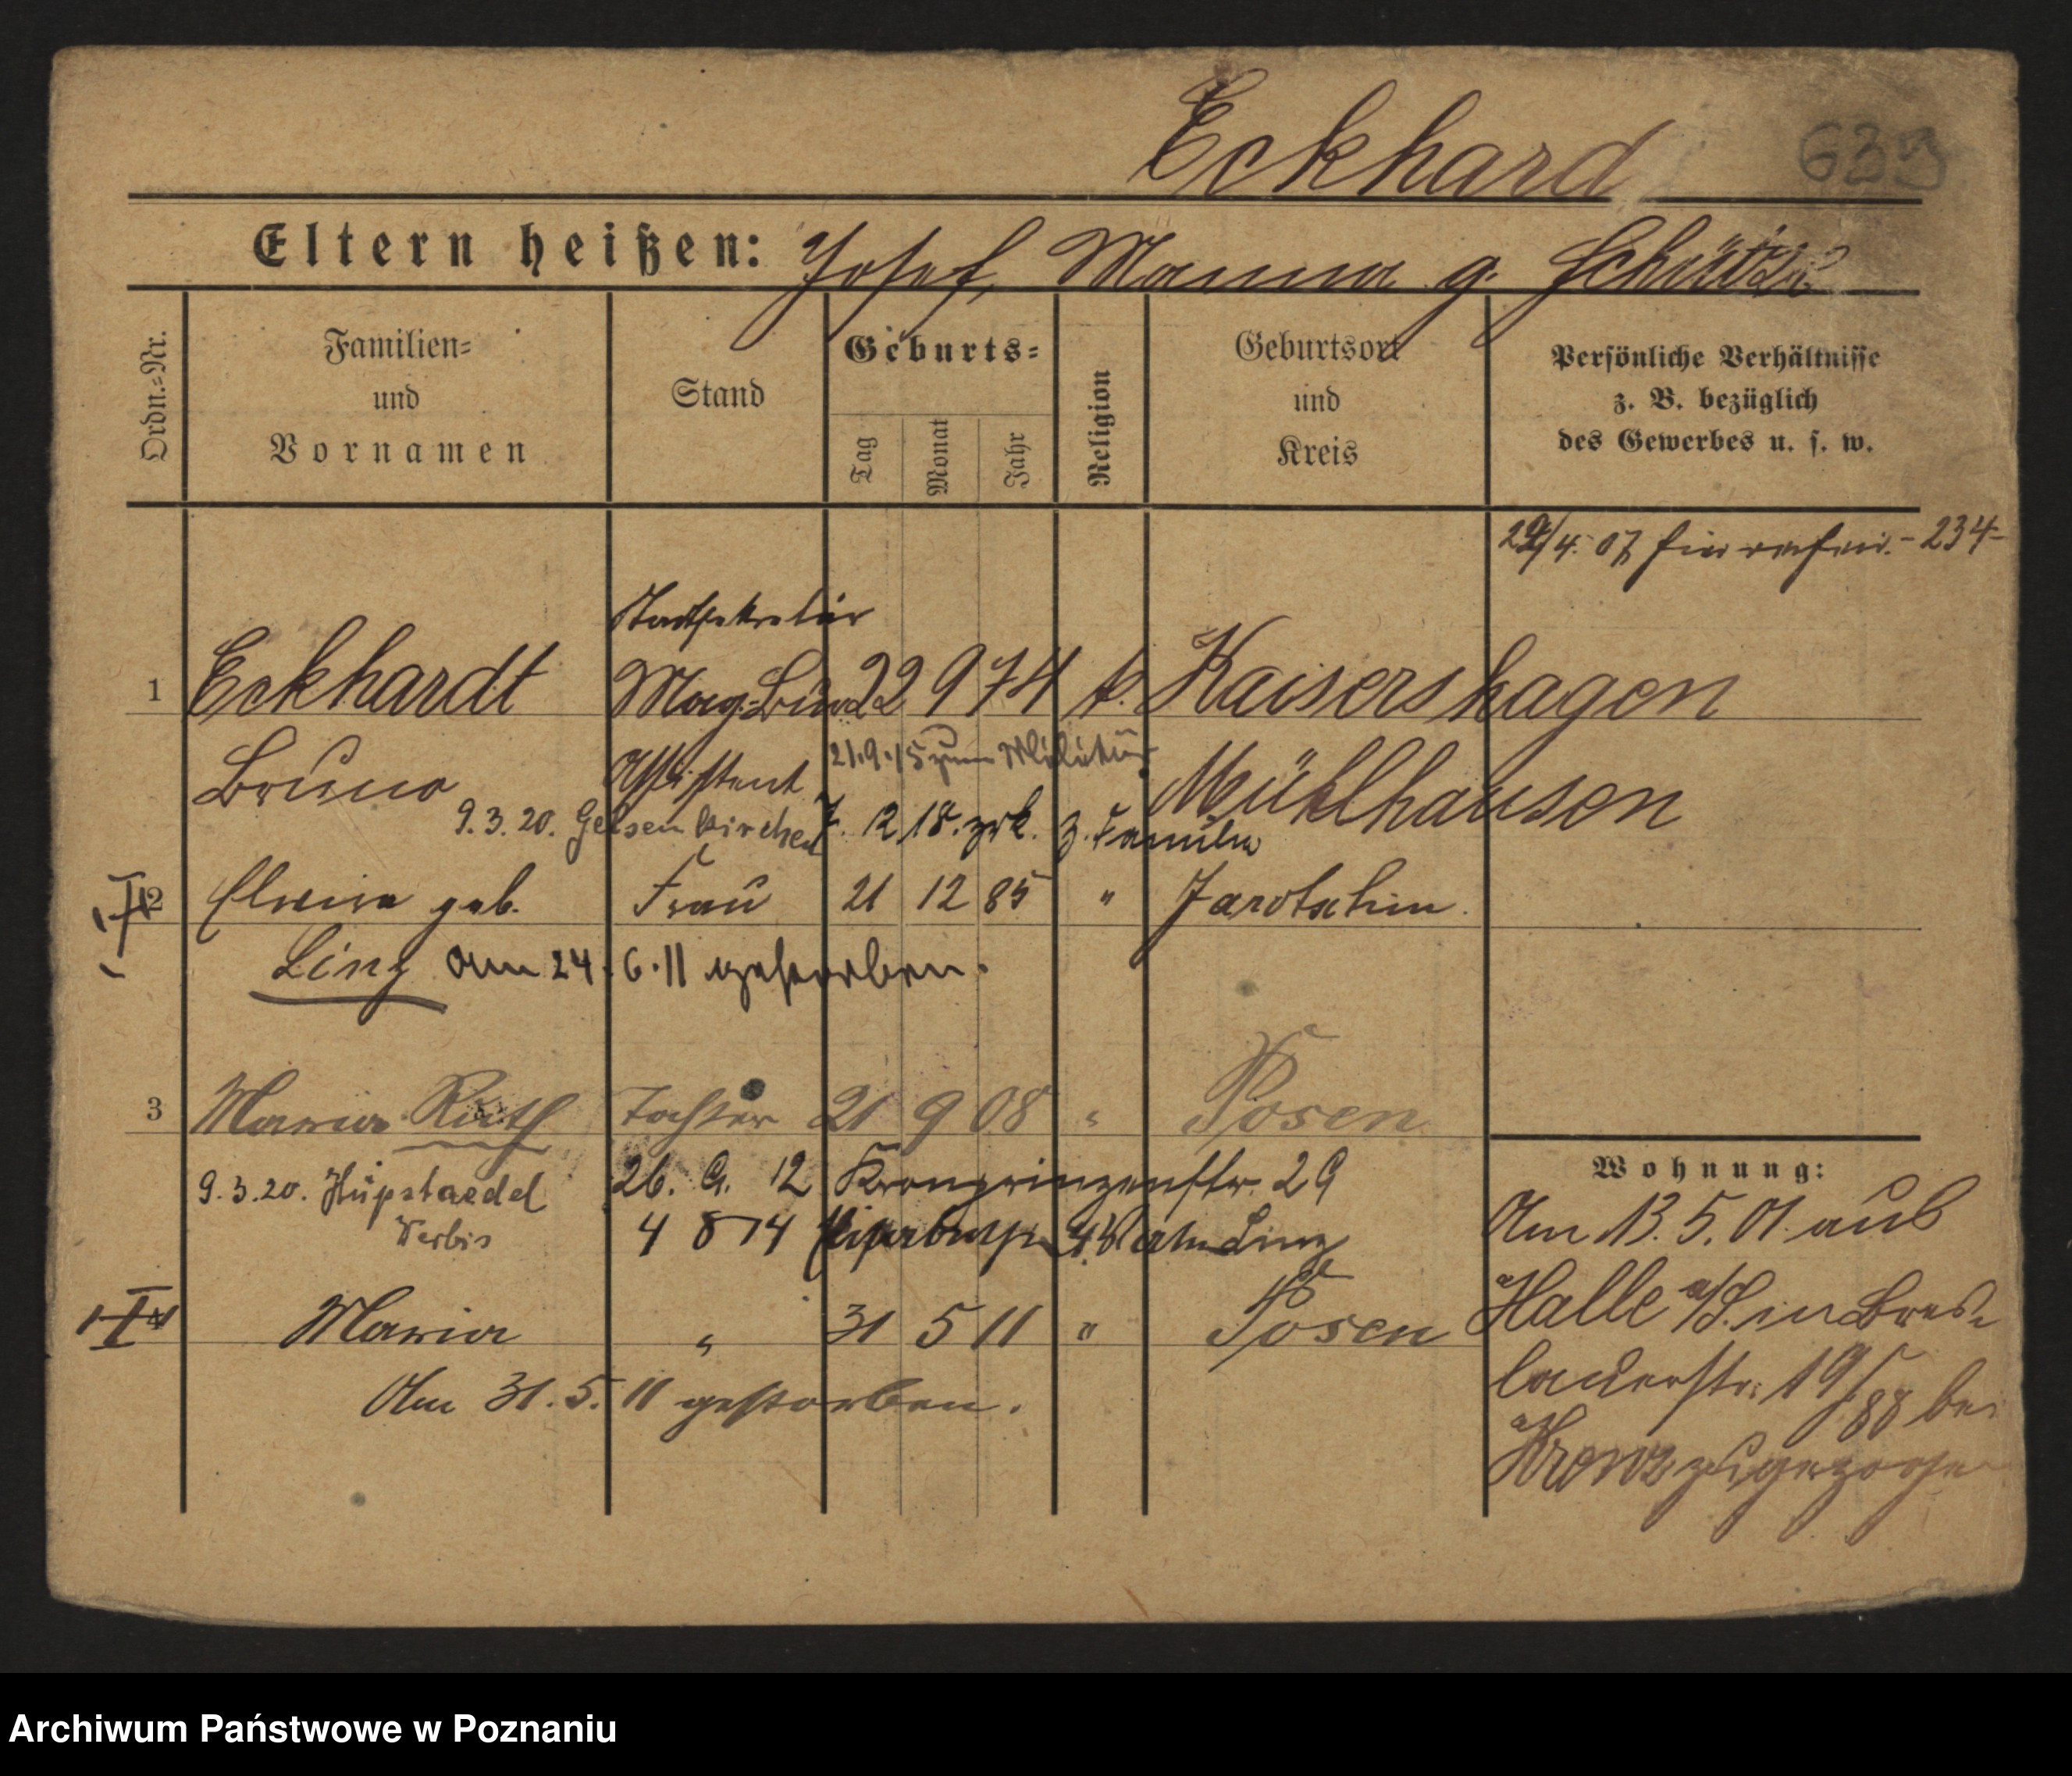 Eckhard 633
Eltern heißen: Josef, Manna g. Schütze
Ordn.=Nr.
Familien=
und
Vornamen
Stand
Geburts=
Tag
Monat
Jahr
Religion
Geburtsort
und
Kreis
Persönliche Verhältnisse
z. B. bezüglich
des Gewerbes u. s. w.
4. 07 - 234 -
Stadtsekretär
1 Eckhardt Mag. Büro 22 9 74 k. Kaisershagen
Bruno Assistent 21.9.15 zum Militär Mühlhausen
9.3.20. Gelsenkirchen 7. 12 18. zrk. z. Familie
2 Elwira geb. Frau 21 12 85 " Jarotschin
Linz am 24.6.11 gestorben.
3 Maria Ruth Tochter 21 9 08 " Posen
9.3.20. Hüpstaedel 26. 9. 12 Kronprinzenstr. 29
Verbis 4 8 14 Linz
4 Maria " 31 5 11 " Posen
Am 31.5.11 gestorben.
Wohnung:
Am 13.5.01. aus
Halle a/S. in Bres=
lauerstr. 19/ bei
zugezogen
Archiwum Państwowe w Poznaniu